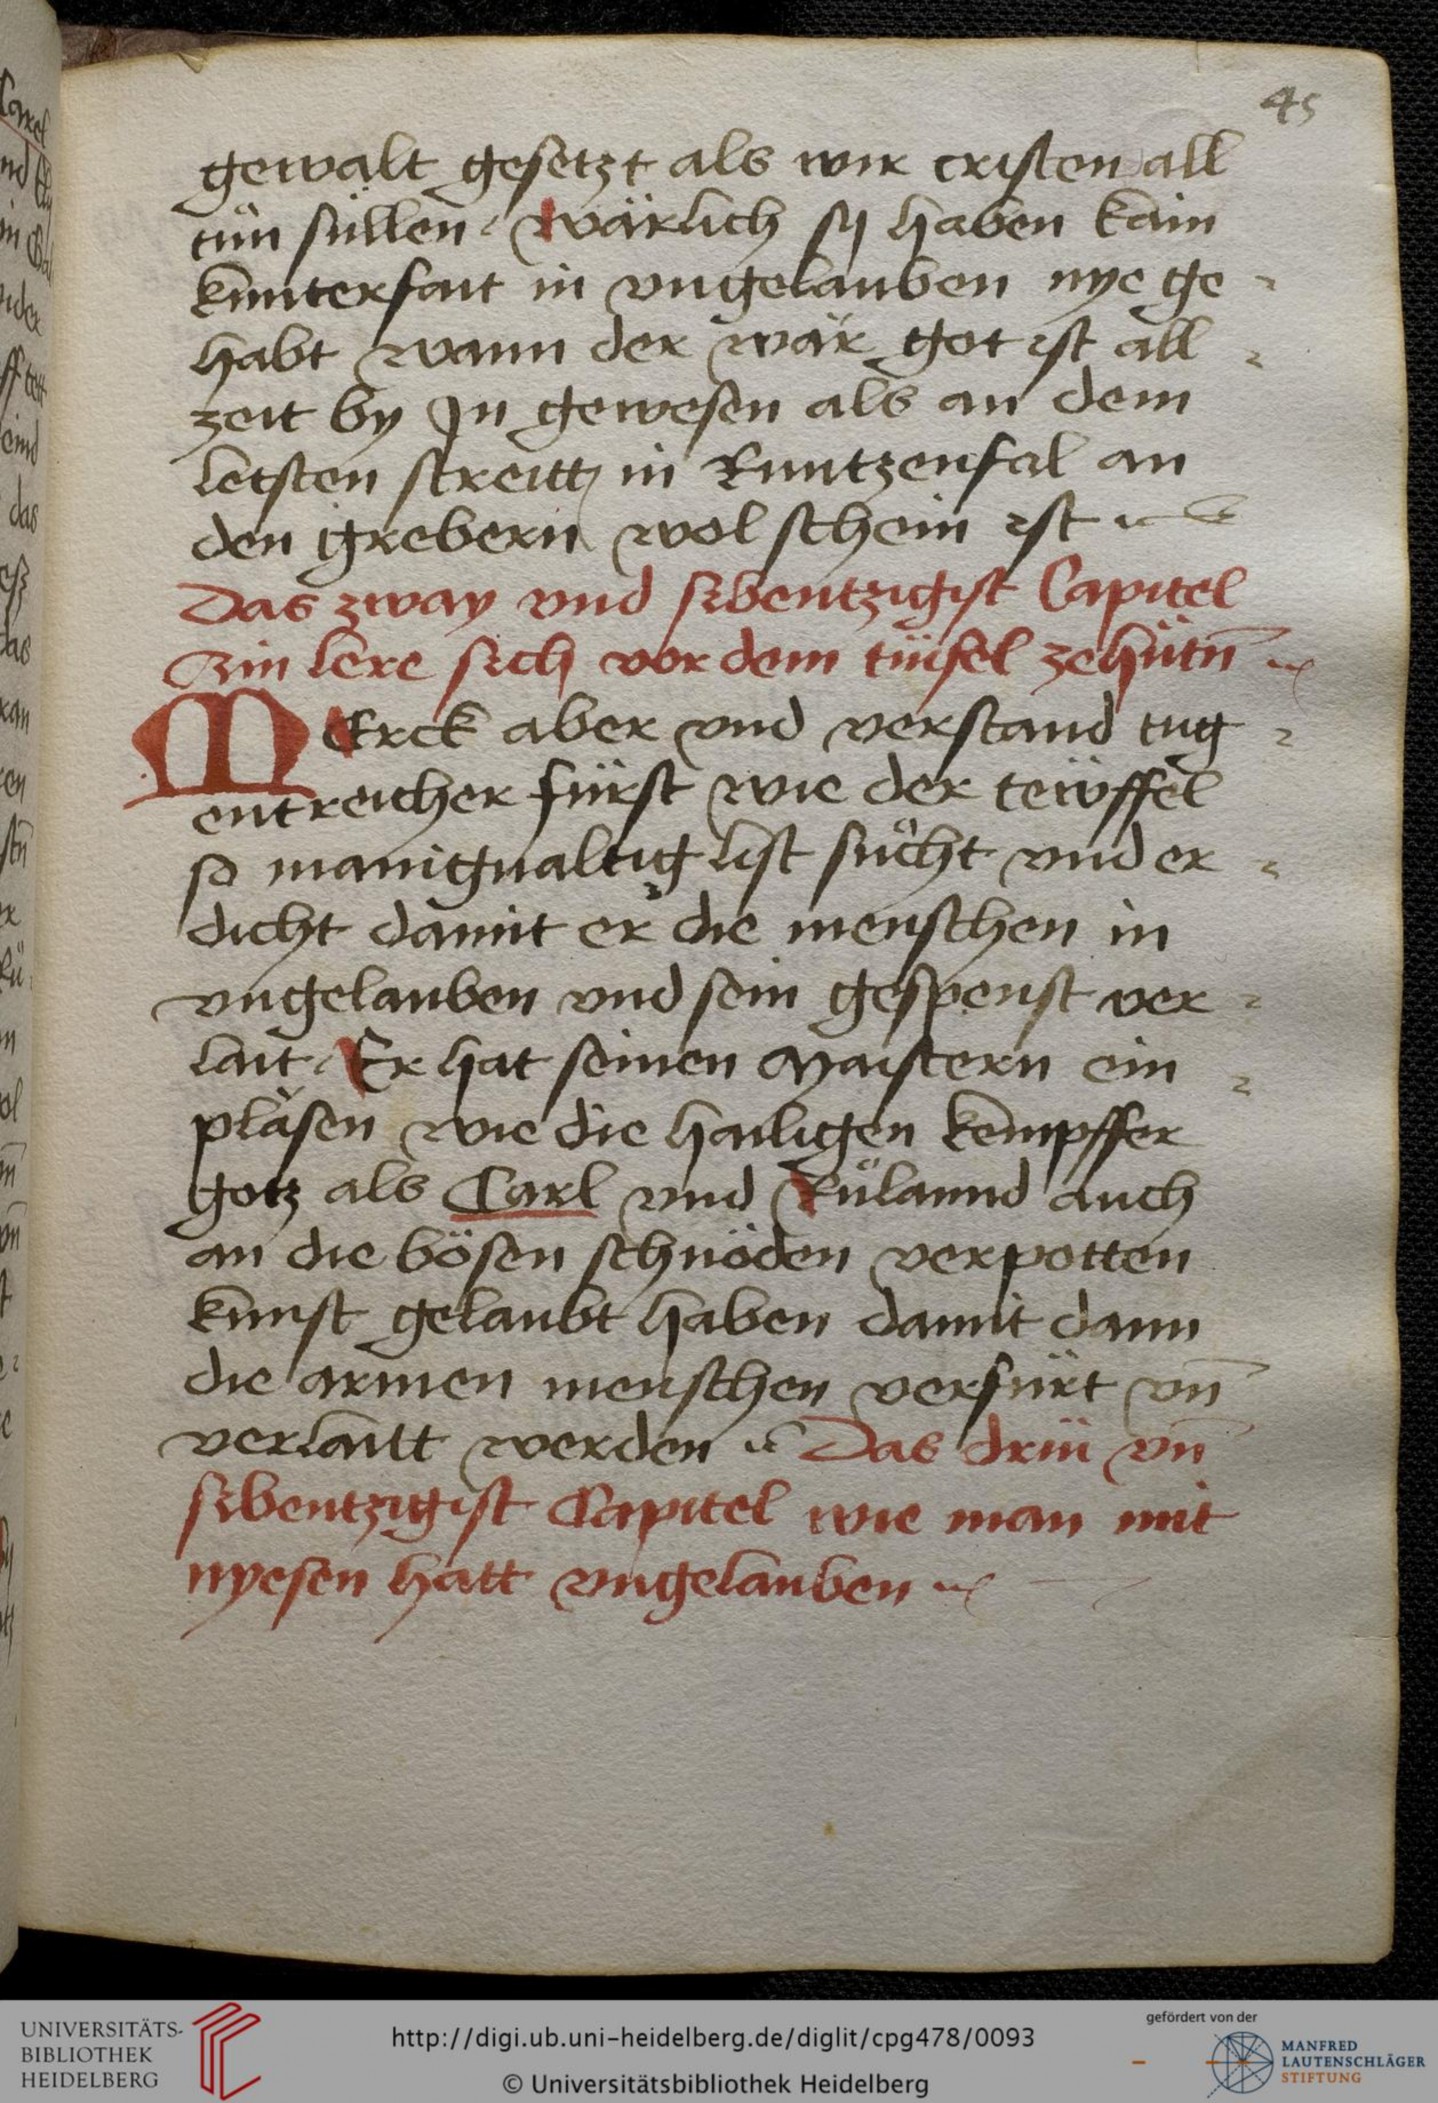 45
gewalt gesetzt als wir cristen all
tün süllen wärlich sy haben kain
kunterfait in vngelauben nye ge-
habt wann der wär got ist all-
zeit by Jn gewesen als an dem
letsten streitt in Runtzenfal an
den grebern wol schein ist
Das zway vnd sibentzigist Capitel
Ain lere sich vor dem tüfel zehütn̄
MErck aber vnd verstand tug-
entreicher fürst wie der tewffel
so manigualtig list sůcht vnd er-
dicht damit er die menschen in
vngelauben vnd sein gespenst ver-
lait Er hat seinen Maistern ein-
pläsen wie die hailigen kempffer
gotz als Carl vnd Růlannd auch
an die bösen schnöden verpotten
kunst gelaubt haben damit dann
die armen menschen verfürt vn̄
verlaitt werden Das drü vn̄
sibentzigist Capitel wie man mit
nyesen hatt vngelauben
UNIVERSITÄTS-
BIBLIOTHEK
HEIDELBERG
http://digi.ub.uni-heidelberg.de/diglit/cpg478/0093
© Universitätsbibliothek Heidelberg
gefördert von der
MANFRED
LAUTENSCHLÄGER
STIFTUNG